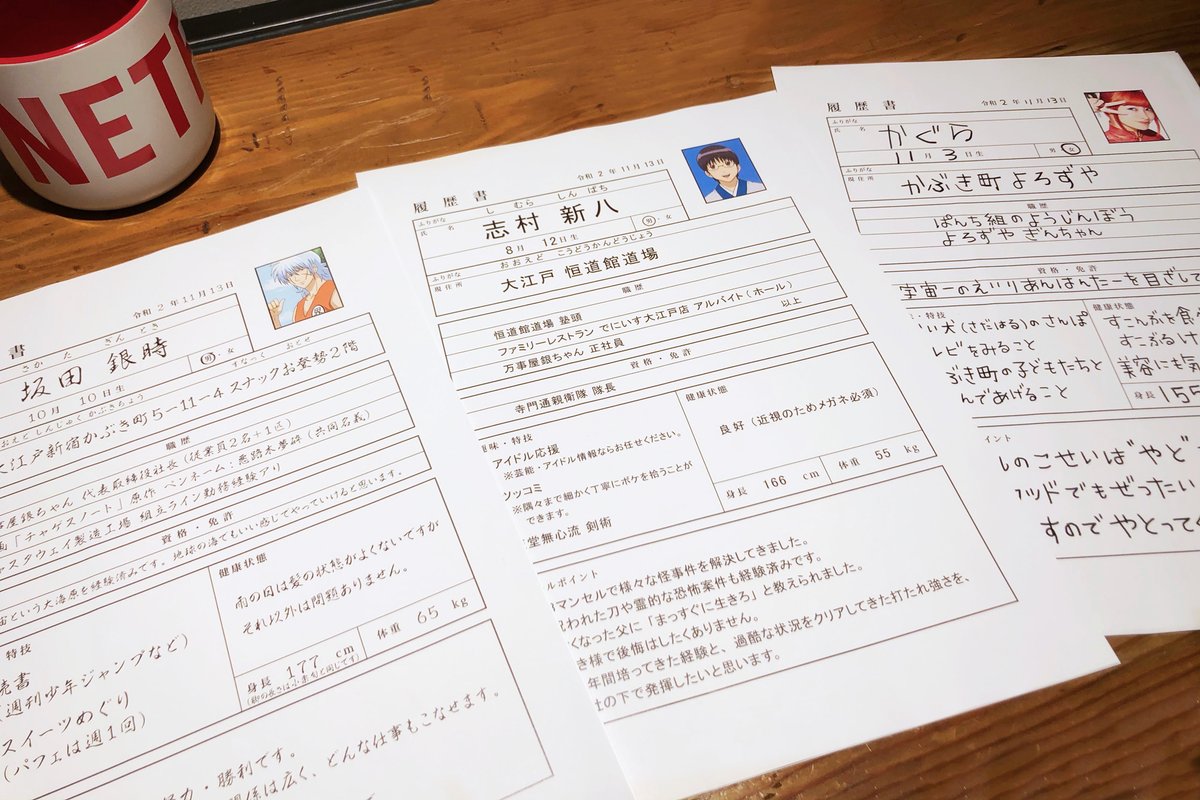 NETF
書
令和 2 年 11月 13日
さか た ぎん とき
坂田 銀時
男・女
10月 10日生
おおえど しんじゅく かぶきちょう すなっく おとせ
大江戸新宿かぶき町5-11-4 スナックお登勢2階
職歴
屋銀ちゃん 代表取締役社長(従業員2名+1匹)
「チャゲスノート」原作 ペンネーム:悪路木夢砕(共同名義)
スタウェイ製造工場 組立ライン勤務経験アリ
資格・免許
宙という大海原を経験済みです。地球の海でもいい感じでやっていけると思います。
特技
読書
(週刊少年ジャンプなど)
スイーツめぐり
(パフェは週1回)
健康状態
雨の日は髪の状態がよくないですが
それ以外は問題ありません。
身長 177 cm
(脚の長さは小栗旬と同じです)
体重 65 kg
努力・勝利です。
関係は広く、どんな仕事もこなせます。
履歴書
令和 2 年 11月 13日
ふりがな し むら しん ぱち
氏名 志村 新八
男・女
8月 12日生
ふりがな おおえど こうどうかんどうじょう
現住所 大江戸 恒道館道場
職歴
恒道館道場 塾頭
ファミリーレストラン でにいす大江戸店 アルバイト(ホール)
万事屋銀ちゃん 正社員
以上
資格・免許
寺門通親衛隊 隊長
趣味・特技
アイドル応援
※芸能・アイドル情報ならお任せください。
ツッコミ
※隅々まで細かく丁寧にボケを拾うことが
できます。
堂無心流 剣術
健康状態
良好(近視のためメガネ必須)
身長 166 cm
体重 55 kg
ルポイント
マンセルで様々な怪事件を解決してきました。
呪われた刀や霊的な恐怖案件も経験済みです。
くなった父に「まっすぐに生きろ」と教えられました。
き様で後悔はしたくありません。
年間培ってきた経験と、過酷な状況をクリアしてきた打たれ強さを、
社の下で発揮したいと思います。
履歴書
令和 2 年 11月 13日
ふりがな
氏名 かぐら
11月 3日生
男・女
ふりがな
現住所 かぶき町 よろずや
職歴
ぱんち組のようじんぼう
よろずや ぎんちゃん
資格・免許
宇宙一のえいりあんはんたーを目ざして
・特技
い犬(さだはる)のさんぽ
レビをみること
ぶき町の子どもたちと
んであげること
健康状態
すこんぶを食べ
すこぶるけ
美容にも気
身長 155
イント
しのこせいは"やど
ウッドでもぜったい
すのでやとって